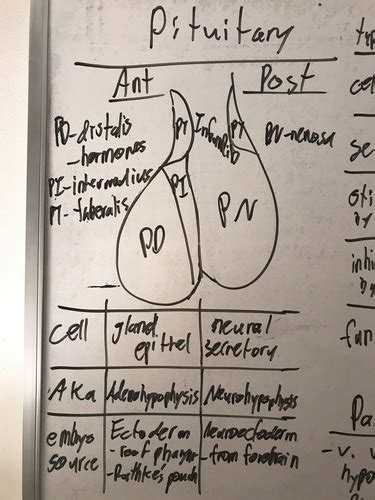 Pituitary
Ant
Post
PD-distalis
-hormones
PI-intermedius
PT-tuberalis
PT
Infundib
PT
PN-nervosa
PI
PD
PN
cell
gland
epittel
neural
secretory
AKa
Adenohypophysis
Neurohypophysis
embryo
source
Ectoderm
-roof pharynx
-Rathke's pouch
Neuroectoderm
-from forebrain
typ
cel
se
inhi
fun
Pa
-v. v
hypo